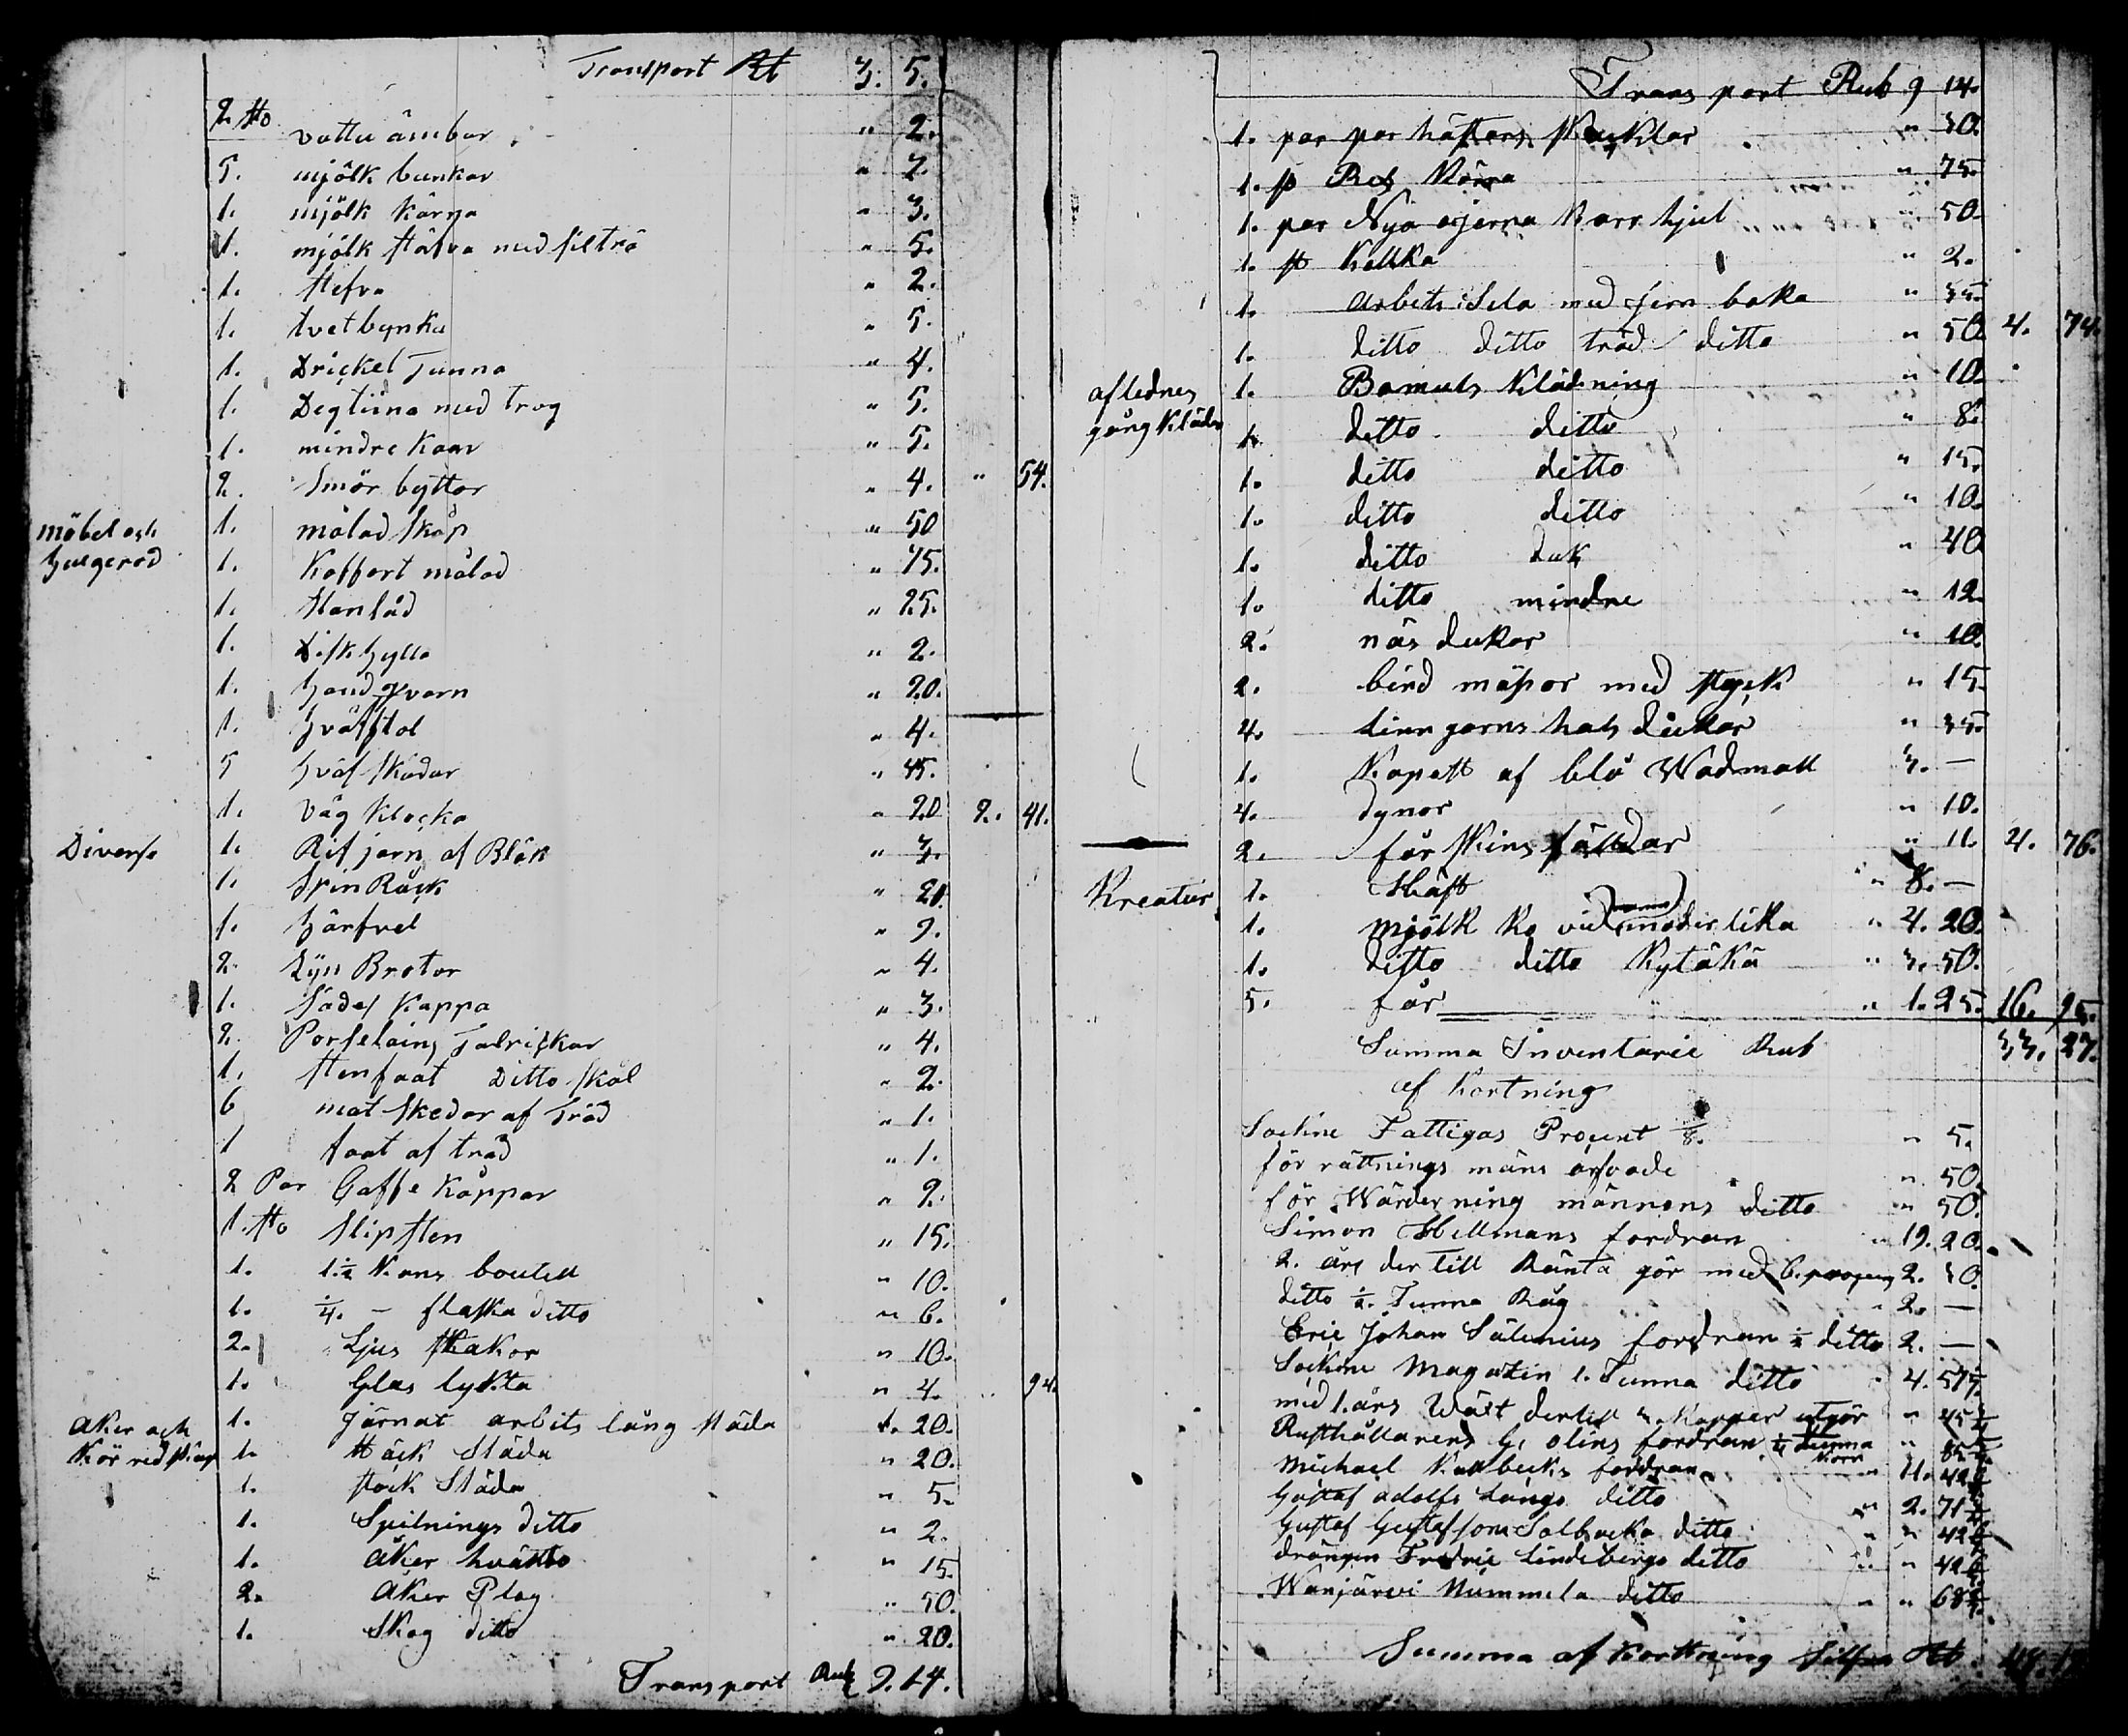 Transport Rb 3. 5.
2. st vattu ämbar " 2.
5. mjölk bunkar " 2.
1. mjölk kärna " 3.
1. mjölk stäfva med siltrå " 5.
1. stefva " 2.
1. tvetbynka " 5.
1. Drickel Tunna " 4.
1. Degtiina med trog " 5.
1. mindre kaar " 5.
2. Smör byttor " 4. " 54.
möbel och husgeråd
1. målad skåp " 50
1. Koffort målad " 75.
1. stånlåd " 25.
1. Diskhylla " 2.
1. handqvarn " 20.
1. hväfstol " 4.
5 hväf skedar " 45.
1. väg klocka " 20 2. 41.
Diverse
1. Rifjern af Bläk " 3.
1. SpinRåck " 21.
1. härfvel " 2.
2. Lÿn Brotor " 4.
1. Sädes kappa " 3.
2. Porselains Talrickar " 4.
1. stenfaat Ditto skål " 2.
6 mat skedar af Träd " 1.
1 faat af träd " 1.
2 Par Gaffe kåppar " 2.
1. st slipsten " 15.
1. 1 1/2 Kans boutell " 10.
1. 1/4. - flaska ditto " 6.
2. Ljus stakar " 10.
1. Glas lykta " 4. " 94.
Åker och Kör redskap
1. Järnat arbits lång släda 1. 20.
1. Häck Släda " 20.
1. stock Släda " 5.
1. Spilnings ditto " 2.
1. åker hvälto " 15.
2. åker Plog " 50.
1. Skog ditto " 20.
Transport Rub 9. 14.
Transport Rub 9 14.
1. par par hästens skacklar " 30.
1. st Res Kärra " 75.
1. par Nya ojerna Karr hjul " 50.
1. st Kelkka " 2.
1. arbets Sela med jern boka " 35.
1. ditto ditto träd ditto " 50 4. 74.
aflednes gång kläder
1. Bomuls Klädning " 10.
1. ditto ditto " 8.
1. ditto ditto " 15.
1. ditto ditto " 10.
1. ditto duk " 40
1. ditto mindre " 12.
2. näs dukar " 10.
2. bind mössor med styck " 15.
4. linn garns hals dukar " 35.
1. Kapott af blå Wadmall 3. —
4. dynor " 10.
2. får skins fälldar " 11. 4. 76.
Kreatur
1. Häst " 8. —
1. mjölk ko vid moderlika " 4. 20.
1. ditto ditto Kytäkä " 3. 50.
5. får " 1. 25. 16. 95.
Summa Inventarie Rub 33. 27.
af kortning
Sockne Fattigas Procent 1/8. " 5.
för rättnings mäns arfvode " 50.
för Wärderning männens ditto " 50.
Simon Hellmans fordran " 19. 20.
2. års der till Ränta gör med 6. procent 2. 30.
ditto 1/2. Tunna Råg " 2. —
Eric Johan Salenius fordran 1/2 ditto 2. —
Sockne Magazin 1. Tunna ditto " 4. 57
med 1. års Wäxt dertill Kappar utgör " 45
Rusthållarens G. Olins fordran 1/4 Tunna Korn " 85
Michael Kallbecks fordran " 11. 42
Gustaf adolfs Långs ditto " 2. 71
Gustaf Gustafsons Solbacka ditto " " 42
drängen Fredric Lindebergs ditto " " 42
Wanjärvi Nummela ditto " " 68
Summa af kortning Silfver Rb 48.